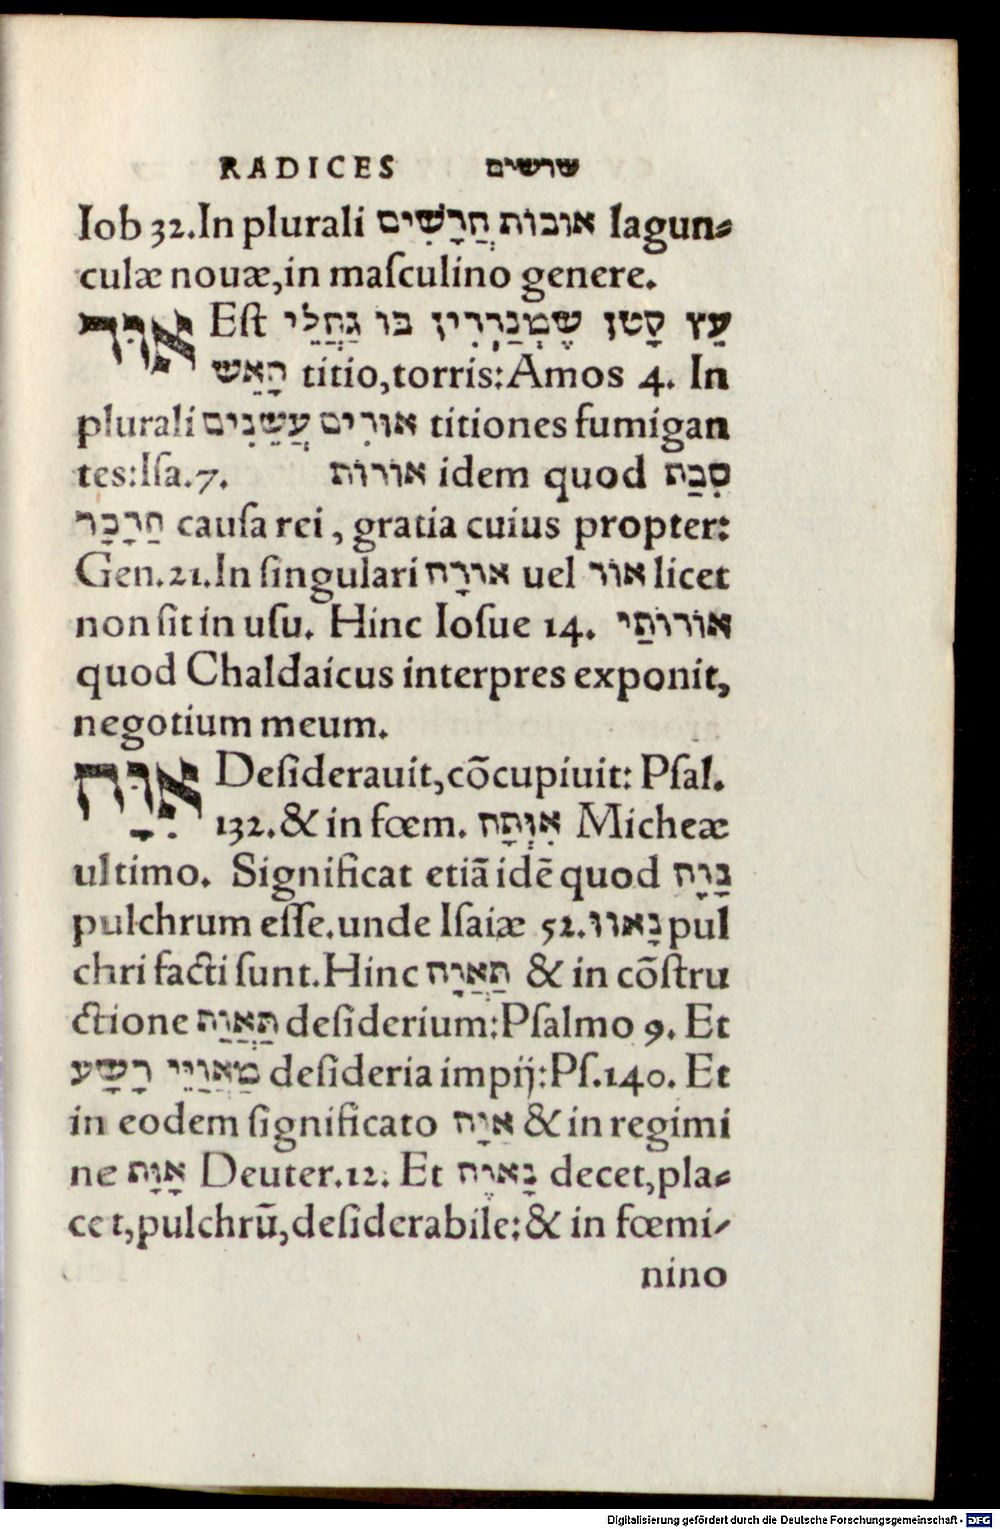 RADICES שרשים
Iob 32. In plurali אובות חֲרָשִׁים lagun⸗
culæ nouæ, in maſculino genere.
אוּד Eſt עֵץ קָטן שֶׁמְנַדְנְדִין בו גַּחֲלֵי
הָאֵשׁ titio, torris: Amos 4. In
plurali אוּדִים עֲשֵׁנִים titiones fumigan
tes: Iſa. 7. אוֹדוֹת idem quod סִבַּת
הַדָבָר cauſa rei, gratia cuius propter:
Gen. 21. In ſingulari אודָה uel אוֹד licet
non ſit in uſu. Hinc Ioſue 14. אוֹדוֹתַי
quod Chaldaicus interpres exponit,
negotium meum.
אִוָּה Deſiderauit, cōcupiuit: Pſal.
132. & in fœm. אִוְּתָה Micheæ
ultimo. Significat etiā idē quod נָוָה
pulchrum eſſe. unde Iſaiæ 52. נָאווּ pul
chri facti ſunt. Hinc תַּאֲוָה & in cōſtru
ctione תַּאֲוַת deſiderium: Pſalmo 9. Et
מַאֲוַיֵּי רָשָׁע deſideria impij: Pſ. 140. Et
in eodem ſignificato אַוָּה & in regimi
ne אַוָּת Deuter. 12. Et נָאוֶה decet, pla⸗
cet, pulchrū, deſiderabile: & in fœmi⸗
nino
Digitalisierung gefördert durch die Deutsche Forschungsgemeinschaft - DFG